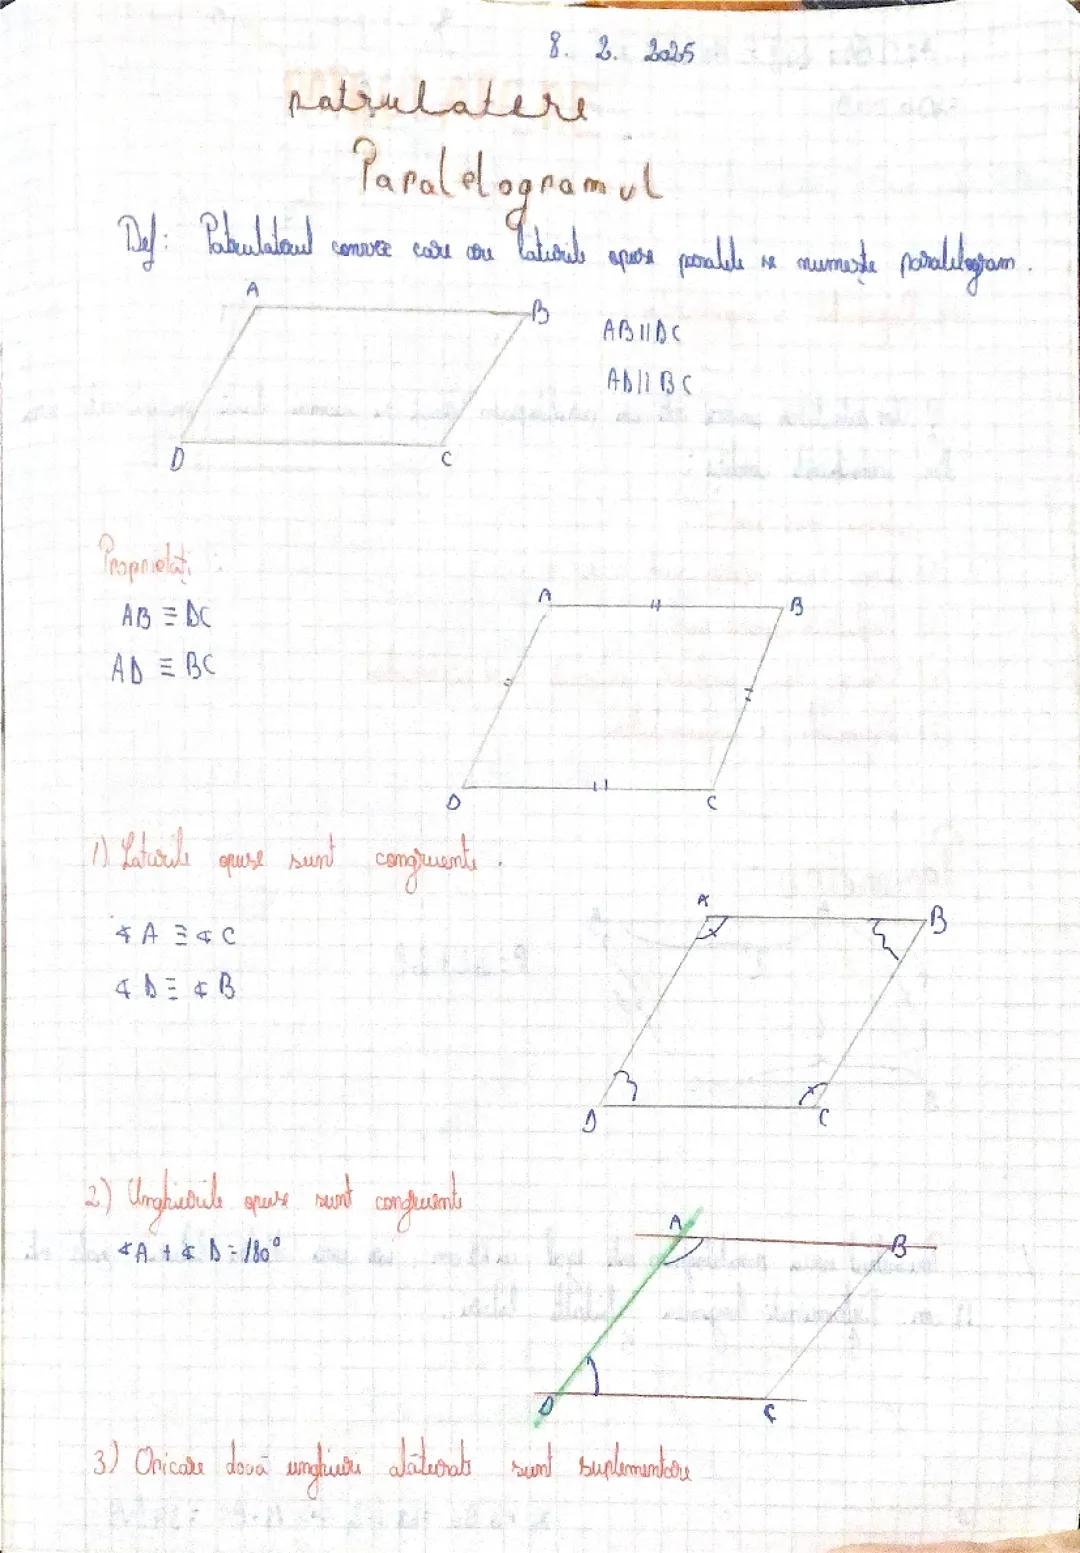 8. 2. 2025
patrulatere
Paralelogramul
Def: Patrulaterul convex care are laturile opuse paralele se numește paralelogram.
A
B
AB || DC
AD || BC
D
C
Proprietăți :
AB ≡ DC
AD ≡ BC
A
B
D
C
1) Laturile opuse sunt congruente.
∢ A ≡ ∢ C
∢ D ≡ ∢ B
A
B
D
C
2) Unghiurile opuse sunt congruente
∢A + ∢ D = 180°
A
B
D
C
3) Oricare două unghiuri alăturate sunt suplementare